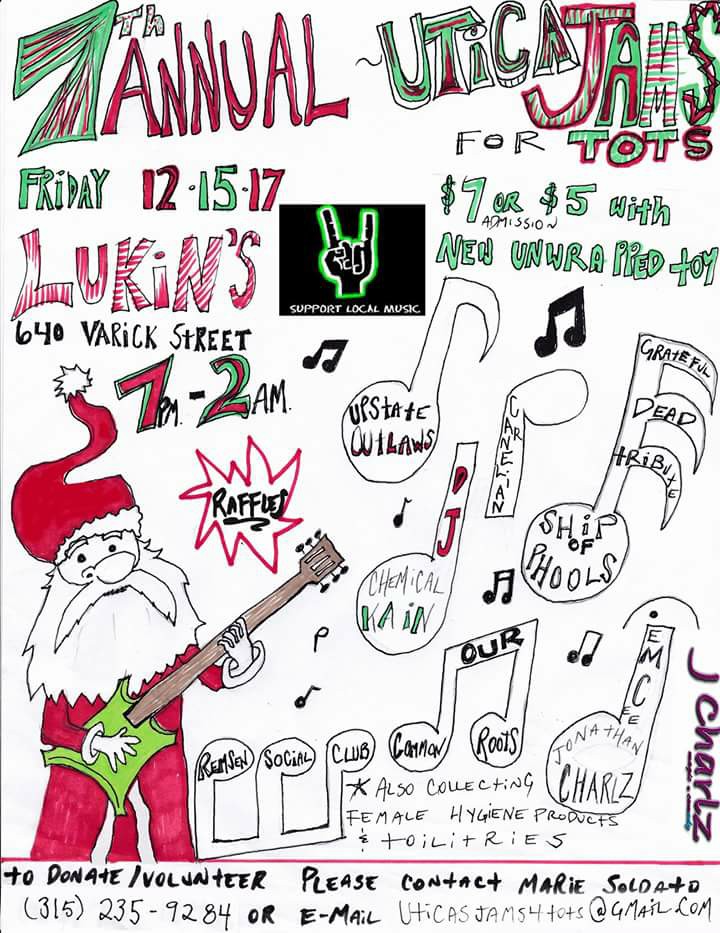 7th ANNUAL ~ UTiCA JAMS
FOR TOTS
FRiDAY 12-15-17
$7 OR $5 with
ADMISSION
NEW UNWRAPPED tOY
LUKiN'S
640 VARiCK StREET
7PM.-2AM.
SUPPORT LOCAL MUSIC
UPStAtE
OUtLAWS
CARNELIAN
GRATEFUL
DEAD
tRiBUtE
SHiP
OF
PHOOLS
RAFFLES
DJ
CHEMiCAL
KAiN
OUR
COMMON ROOtS
EMCEE
JONATHAN
CHARLZ
J Charlz
REMSEN SOCiAL CLUB
* ALSO COLLECTiNG
FEMALE HYGiENE PRODUCtS
& tOiLitRiES
tO DONAtE/VOLUNtEER PLEASE CONtACt MARiE SOLDAtO
(315) 235-9284 OR E-MAiL UtiCASJAMS4tOtS@GMAiL.COM